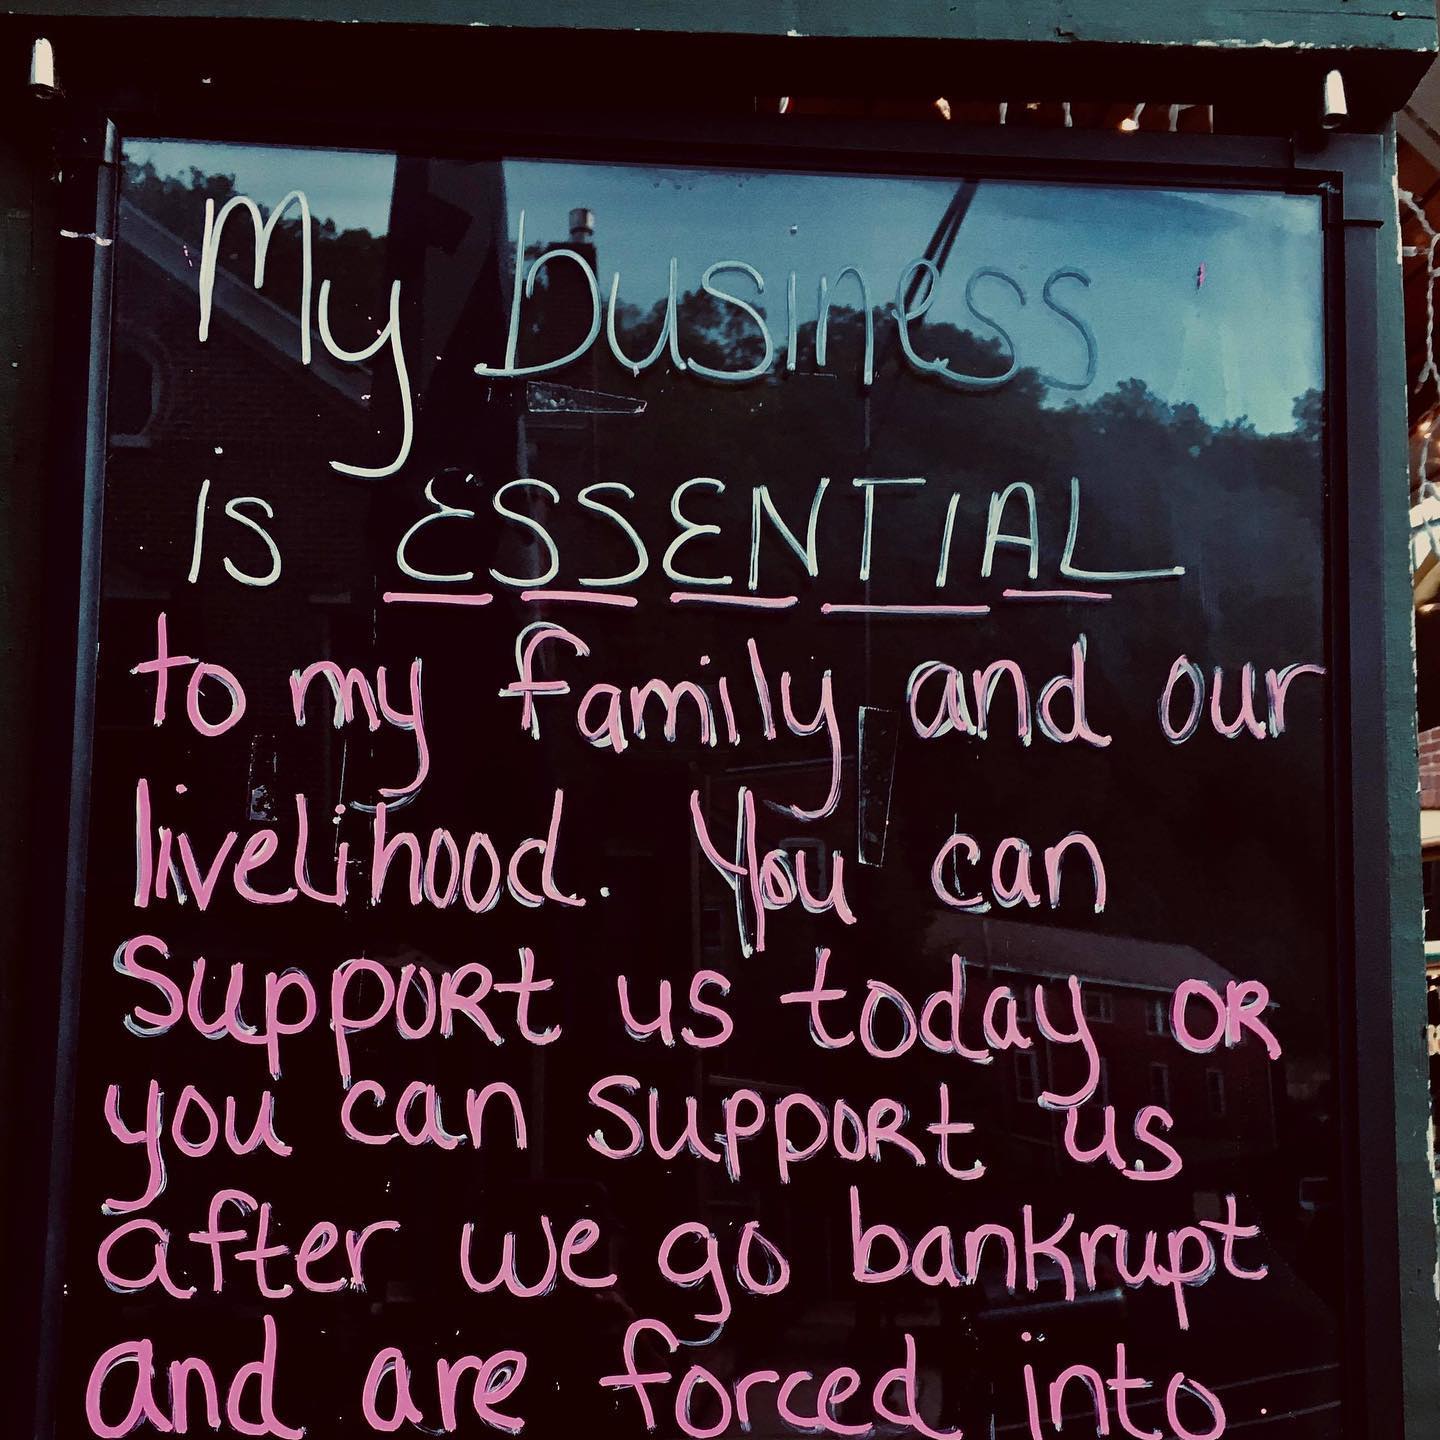 My business
is ESSENTIAL
to my family and our
livelihood. You can
Support us today OR
you can support us
after we go bankrupt
and are forced into